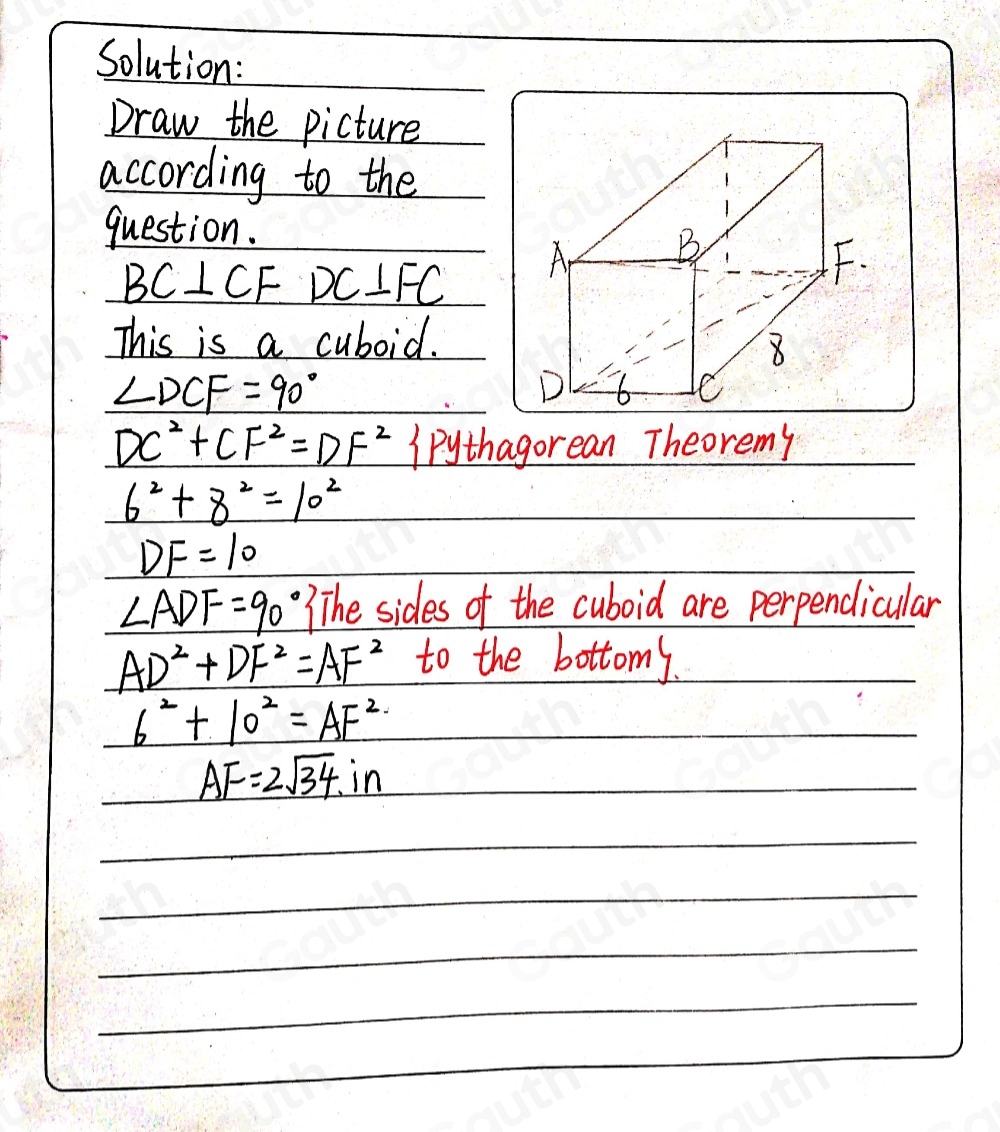 Solution:
Draw the picture
according to the
question.
BC⊥CF DC⊥FC
This is a cuboid.
∠DCF=90°
DC²+CF²=DF² {Pythagorean Theorem}
6²+8²=10²
DF=10
∠ADF=90° {The sides of the cuboid are perpendicular
AD²+DF²=AF² to the bottom}.
6²+10²=AF².
AF=2√34.in
A B F.
D 6 C 8
Gauth